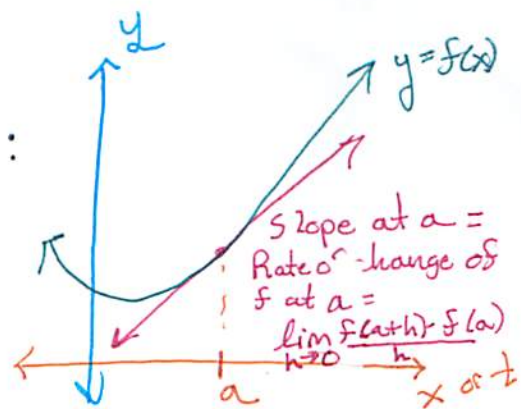 y
y=f(x)
:
Slope at a =
Rate of change of
f at a =
lim h→0 f(a+h)-f(a)/h
a
x or t